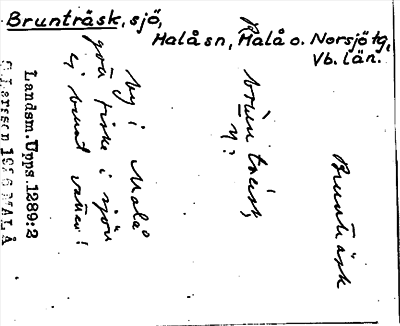 Brunträsk, sjö,
Malå sn, Malå o. Norsjö tg,
Vb. län.
Brunträsk
by i Malå
god fiske i sjön
ej brunt vatten!
Landsm. Upps. 1289:2
Larsson 1936 MALÅ